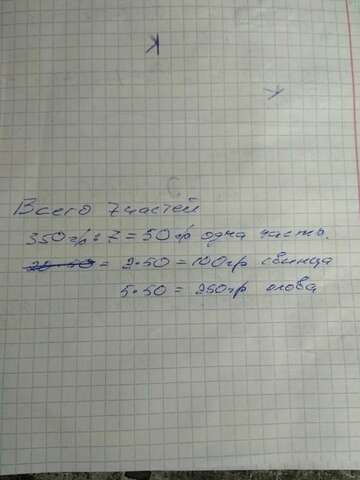 Всего 7 частей
350гр : 7 = 50гр одна часть.
= 2·50 = 100гр свинца
5·50 = 250гр олова